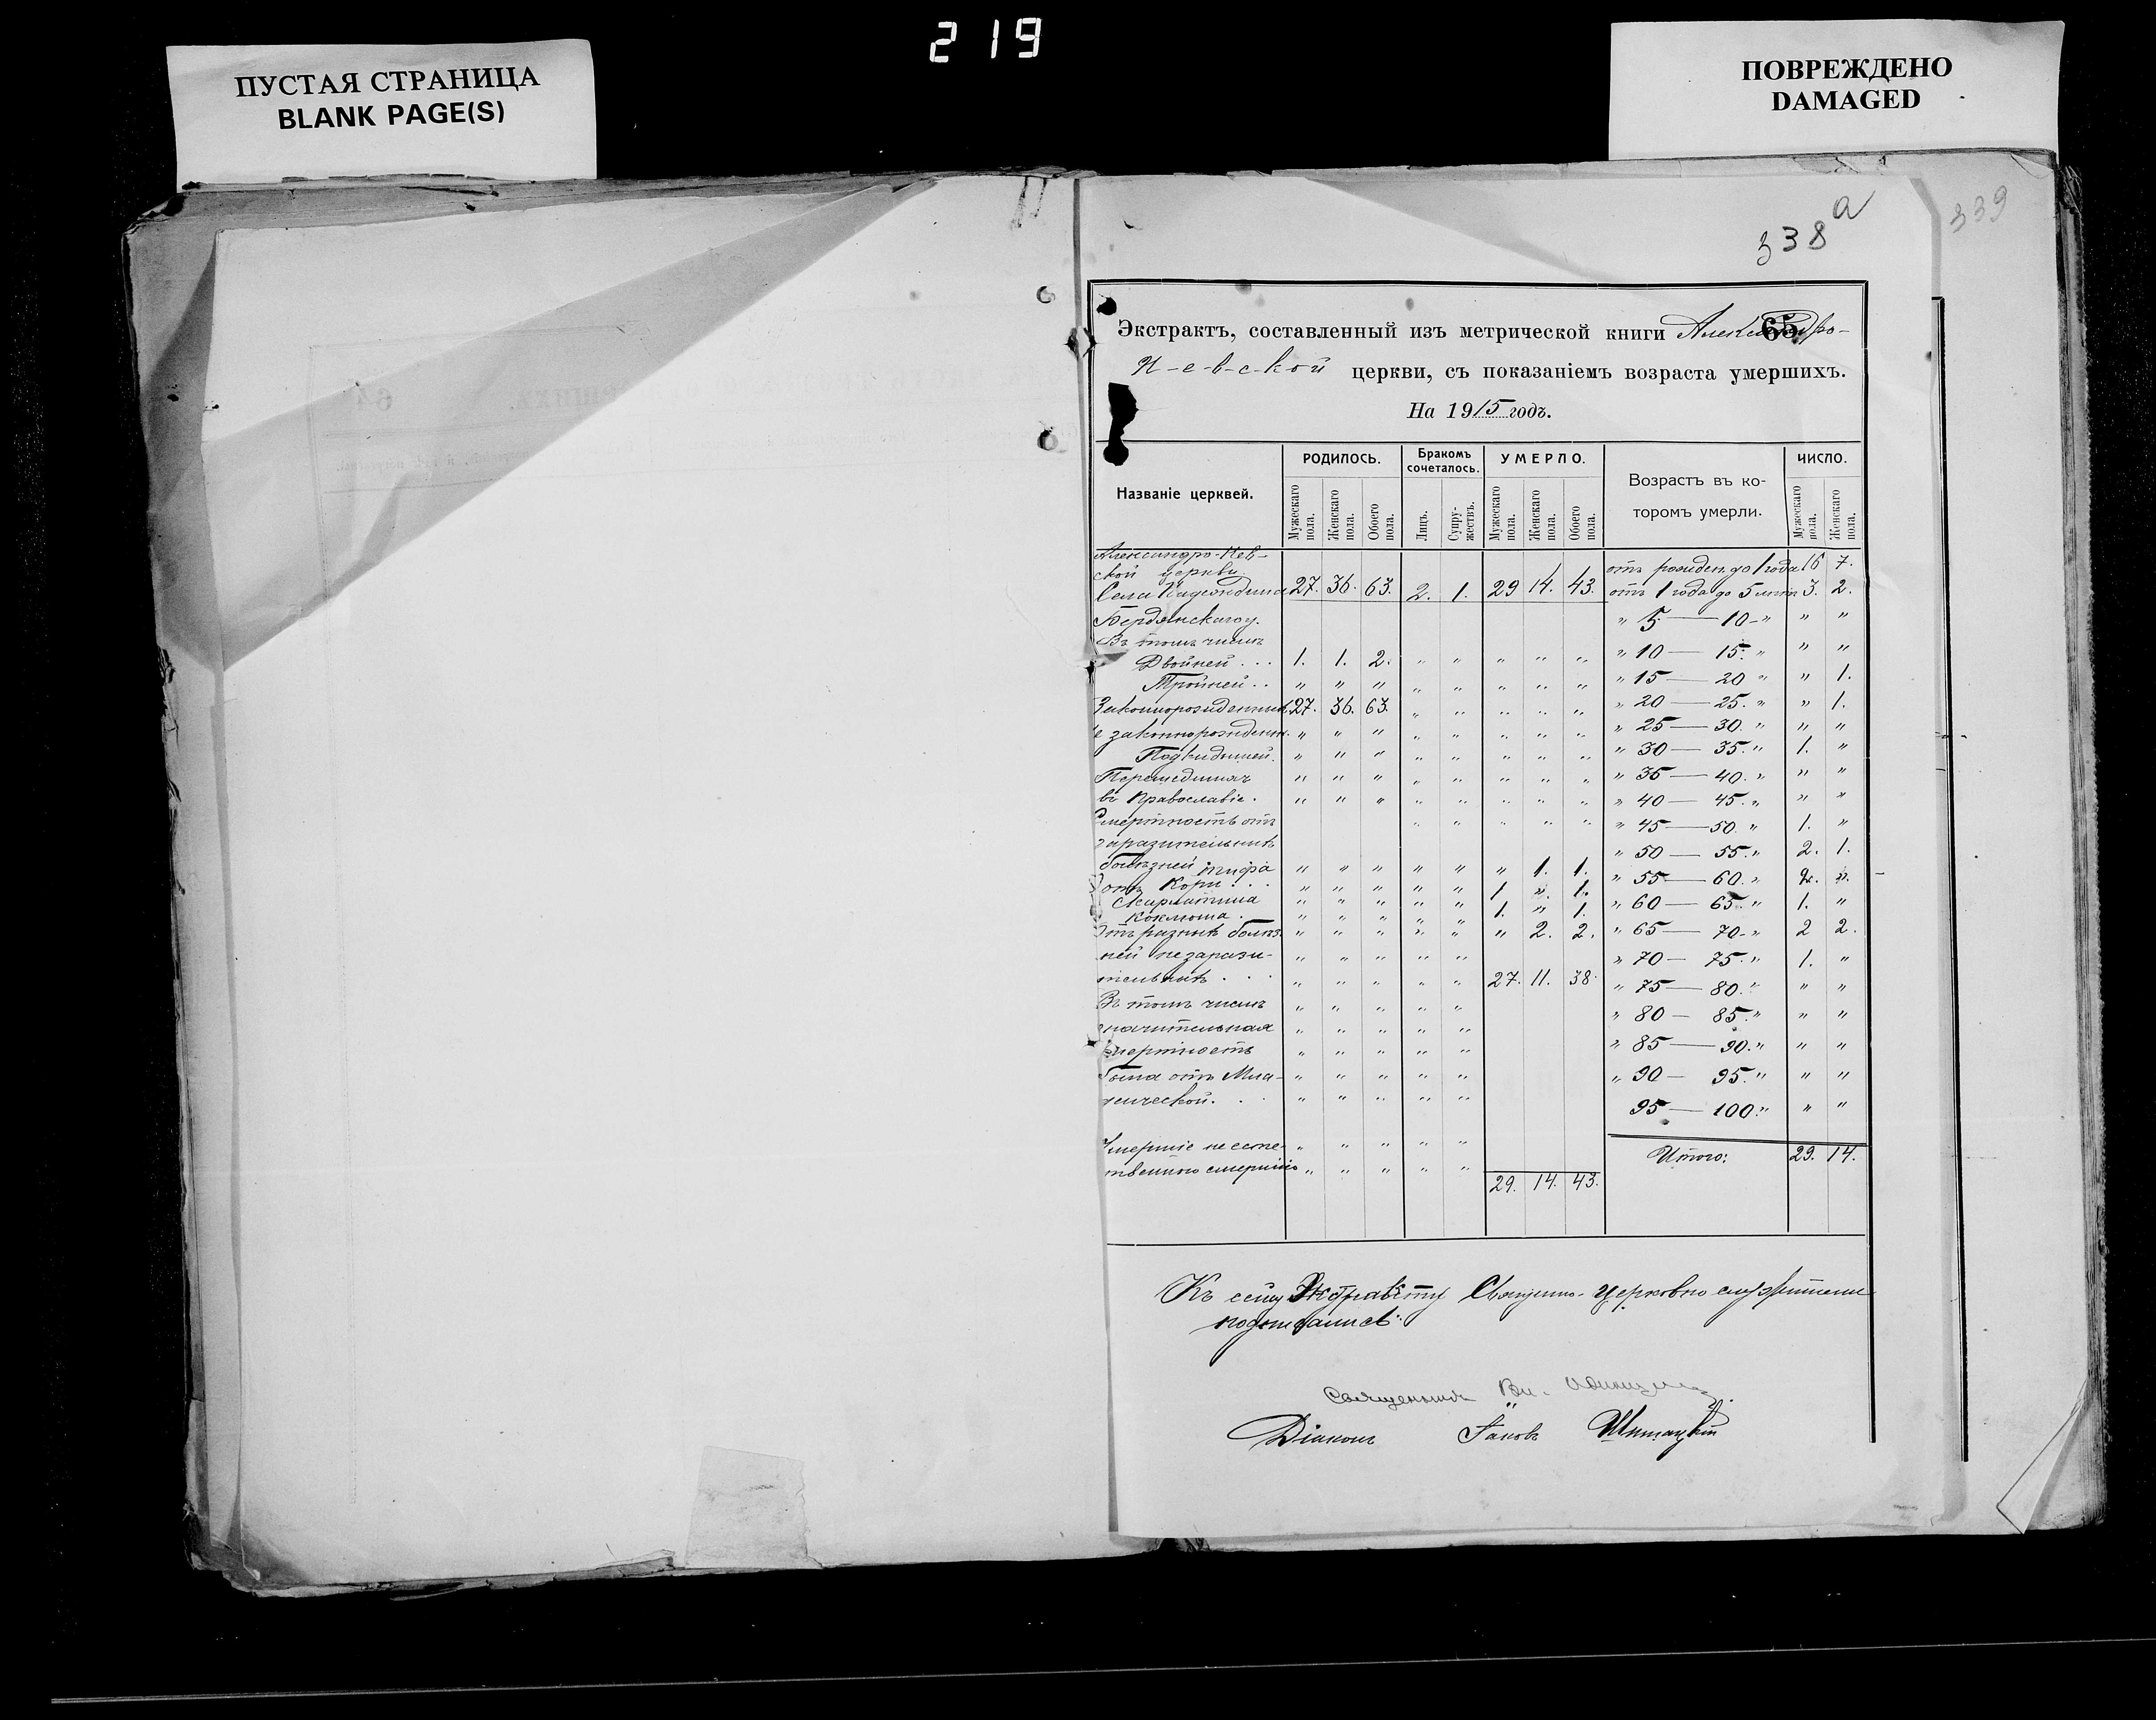 219
ПУСТАЯ СТРАНИЦА
BLANK PAGE(S)
ПОВРЕЖДЕНО
DAMAGED
338 а
339
65
Экстрактъ, составленный изъ метрической книги Александро-
Н-е-в-с-кой церкви, съ показаніемъ возраста умершихъ.
На 1915 годъ.
Названіе церквей.
РОДИЛОСЬ.
Мужескаго пола.
Женскаго пола.
Обоего пола.
Бракомъ сочеталось.
Лицъ.
Супру-жествъ.
УМЕРЛО.
Мужескаго пола.
Женскаго пола.
Обоего пола.
Возрастъ въ ко-
торомъ умерли.
ЧИСЛО.
Мужескаго пола.
Женскаго пола.
Александро-Нев-
ской церкви отъ рожден. до 1 года 16 7.
Села 27. 36. 63. 2. 1. 29 14. 43. отъ 1 года до 5 лѣтъ 3. 2.
Бердянскаго у. " 5 — 10 - " " "
Въ томъ числѣ
Двойней . . . 1. 1. 2. " " " " " " 10 — 15. " " "
Тройней . . " " " " " " " " " 15 — 20 " " 1.
Законнорожденныхъ 27. 36. 63. " " " " " " 20 — 25. " " 1.
е законнорожден. " " " " " " " " " 25 — 30. " " "
Подкидышей. " " " " " " " " " 30 — 35. " 1. "
Перешедшихъ " " " " " " " " " 35 — 40. " " "
въ Православіе. " " " " " " " " " 40 — 45. " " "
Смертность отъ " " " " " " 45 — 50. " 1. "
заразительныхъ " 50 — 55. " 2. 1.
болѣзней тифа " " " " " " 1. 1. " 55 — 60. " 2. ".
отъ Кори . . . " " " " " 1 " 1. " 60 — 65. " 1. "
Скарлатина " " " " " 1. " 1.
Коклюша . " " " " "
Отъ разныхъ болѣз- " " " " " " 2. 2. " 65 — 70 - " 2 2.
ней незарази- " " " " " " 70 — 75. " 1. "
тельныхъ . . . " " " " " 27. 11. 38. " 75 — 80. " " "
Въ томъ числѣ " " " " " " 80 — 85. " " "
значительная " " " " "
смертность " " " " " " 85 — 90. " " "
была отъ Мла- " " " " " " 90 — 95. " " "
денческой. . . " " " " " 95 — 100. " " "
Умершіе не есте- " " " " " Итого: 29. 14.
твенною смертію " " " " "
29. 14. 43.
Къ сему Экстракту Священно-церковно служители
подписались:
Священникъ Вл.
Діаконъ Іаковъ